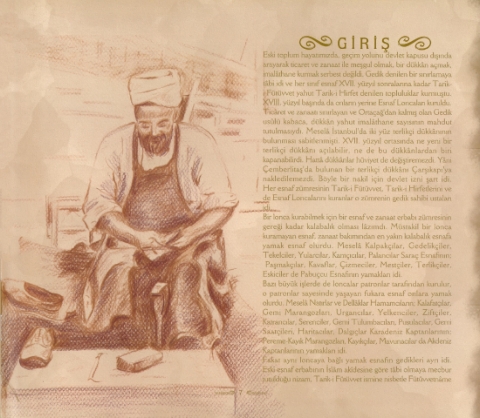 GİRİŞ
Eski toplum hayatımızda, geçim yolunu devlet kapısı dışında
arayarak ticaret ve zanaat ile meşgul olmak, bir dükkân açmak,
imalâthane kurmak serbest değildi. Gedik denilen bir sınırlamaya
tâbi idi ve her sınıf esnaf XVII. yüzyıl sonralarına kadar Tarik-
i Fütüvvet yahut Tarik-i Hirfet denilen topluluklar kurmuştu.
XVIII. yüzyıl başında da onların yerine Esnaf Loncaları kuruldu.
Ticaret ve zanaatin ve Ortaçağ'dan kalmış olan Gedik
usûlü kabaca, dükkân yahut imalâthane sayısının mahdut
tutulmasıydı. Meselâ İstanbul'da iki yüz terlikçi dükkânının
bulunması sınırlanmıştı. XVII. yüzyıl ortasında ne yeni bir
terlikçi dükkânı açılabilir, ne de bu dükkânlardan biri
kapanabilirdi. Hatta dükkânlar hüviyet de değiştiremezdi. Yine
Çemberlitaş'da bulunan bir terlikçi dükkânı Çarşıkapı'ya
nakledilemezdi. Böyle bir nakil için devlet izni şart idi.
Her esnaf zümresinin Tarik-i Fütüvvet, Tarik-i Hirfetlerini ve
de Esnaf Loncalarını kuranlar o zümrenin gedik sahibi ustaları
idi.
Bir lonca kurabilmek için bir esnaf ve zanaat erbabı zümresinin
gereği kadar kalabalık olması lâzımdı. Müstakil bir lonca
kuramayan esnaf, zanaat bakımından en yakın kalabalık esnafa
yamak esnaf olurdu. Meselâ Kalpakçılar, Gedelikçiler,
Tekelüler, Yularcılar, Kamçıcılar, Palancılar Saraç Esnafının
Paşmakçılar, Kavaflar, Çizmeciler, Mestçiler, Terlikçiler,
Eskiciler de Pabuççu Esnafının yamakları idi.
Bazı büyük işlerde de loncalar patronlar tarafından kurulur,
o patronlar sayesinde yaşayan fukara esnaf onlara yamak
olurdu. Meselâ Natırlar ve Dellâklar Hamamcıların; Kalafatçılar,
Gemi Marangozları, Urgancılar, Yelkenciler, Zifçiler,
Gemi Tübinhacıları, Pusulacılar, Gemi
Saatçileri, Haritacılar, Dalgıçlar Karadeniz Kaptanlarının;
Pereme Kayık Marangozları, Kayıkçılar, Mavunacılar da Akdeniz
Kaptanlarının yamakları idi.
Fakat aynı loncaya bağlı yamak esnafın gedikleri ayrı idi.
Eski esnaf erbabının İslâm akidesine göre tâbi olmaya mecbur
tutulduğu nizam, Tarik-i Fütüvvet ismine nisbetle Fütüvvetnâme